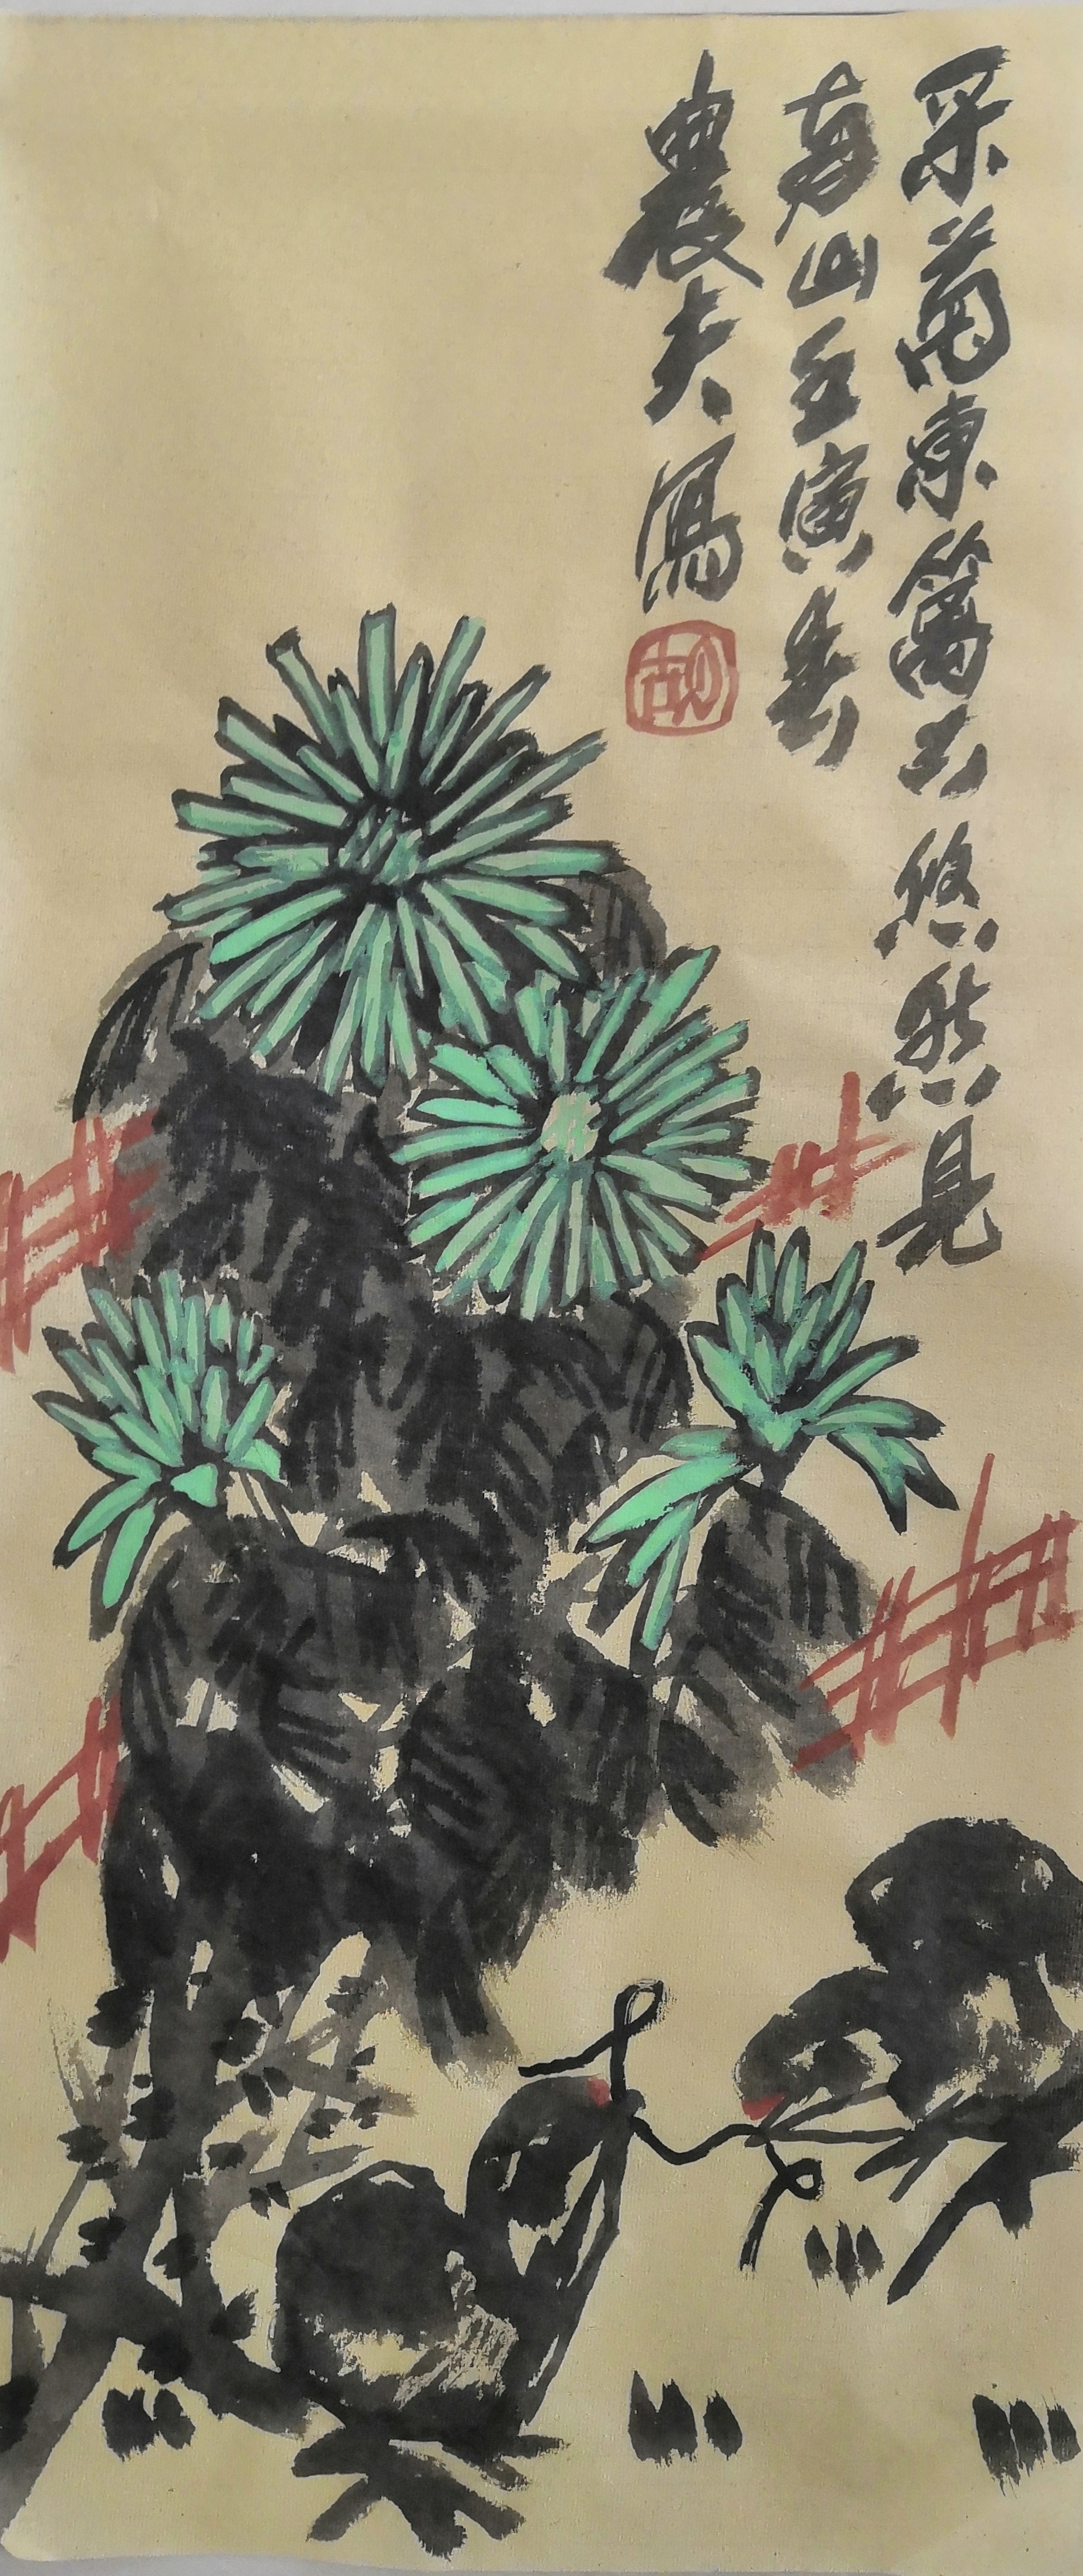 采菊東篱下悠然見
南山壬寅春
農夫寫